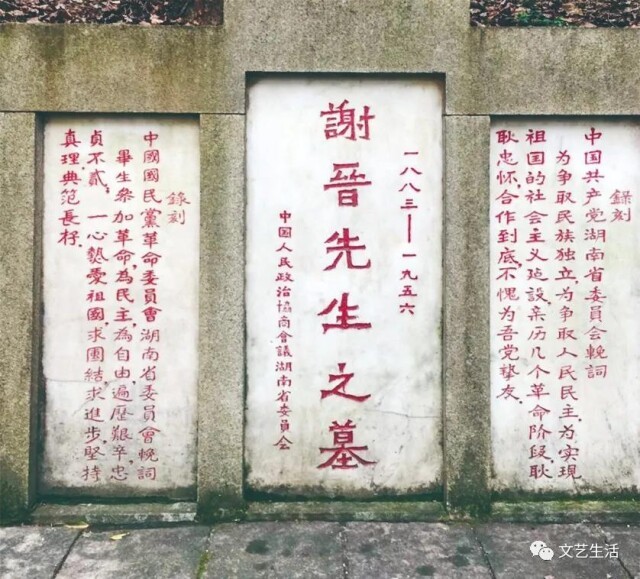 錄刻
中国共产党湖南省委员会輓词
为争取民族独立,为争取人民民主,为实现
祖国的社会主义建设,亲历几个革命阶段,耿
耿忠怀,合作到底不愧为吾党摯友
一八八三——一九五六
謝晉先生之墓
中國人民政治協商會議湖南省委員会
錄刻
中國國民黨革命委員會湖南省委員會輓詞
畢生参加革命,為民主,為自由,遍歷艱辛,忠
貞不貳;一心熱愛祖國,求團結,求進步,堅持
真理典范長
文艺生活